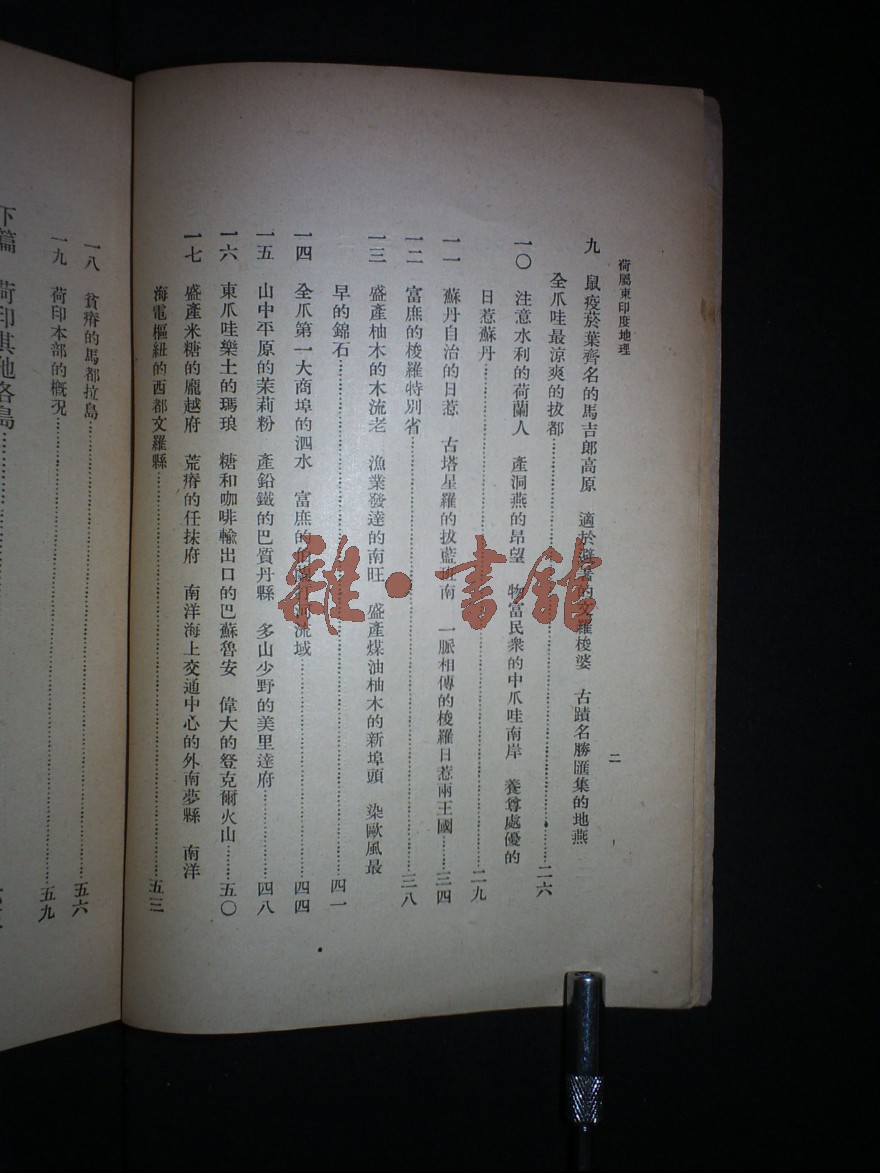 荷屬東印度地理
二
九 鼠疫菸葉齊名的馬吉郎高原 適於避暑的文羅梭婆 古蹟名勝匯集的地燕
全爪哇最涼爽的拔都……二六
一〇 注意水利的荷蘭人 產洞燕的昂望 物富民衆的中爪哇南岸 養尊處優的
日惹蘇丹……二九
一一 蘇丹自治的日惹 古塔星羅的拔藍班南 一脈相傳的梭羅日惹兩王國……三四
一二 富庶的梭羅特別省……三八
一三 盛產柚木的木流老 漁業發達的南旺 盛產煤油柚木的新埠頭 染歐風最
早的錦石……四一
一四 全爪第一大商埠的泗水 富庶的 流域……四四
一五 山中平原的茉莉粉 產鉛鐵的巴質丹縣 多山少野的美里達府……四八
一六 東爪哇樂土的瑪琅 糖和咖啡輸出口的巴蘇魯安 偉大的登克爾火山……五〇
一七 盛產米糖的龐越府 荒瘠的任抹府 南洋海上交通中心的外南夢縣 南洋
海電樞紐的西都文羅縣……五三
一八 貧瘠的馬都拉島……五六
一九 荷印本部的概況……五九
下篇 荷印其他各島……
雜·書館